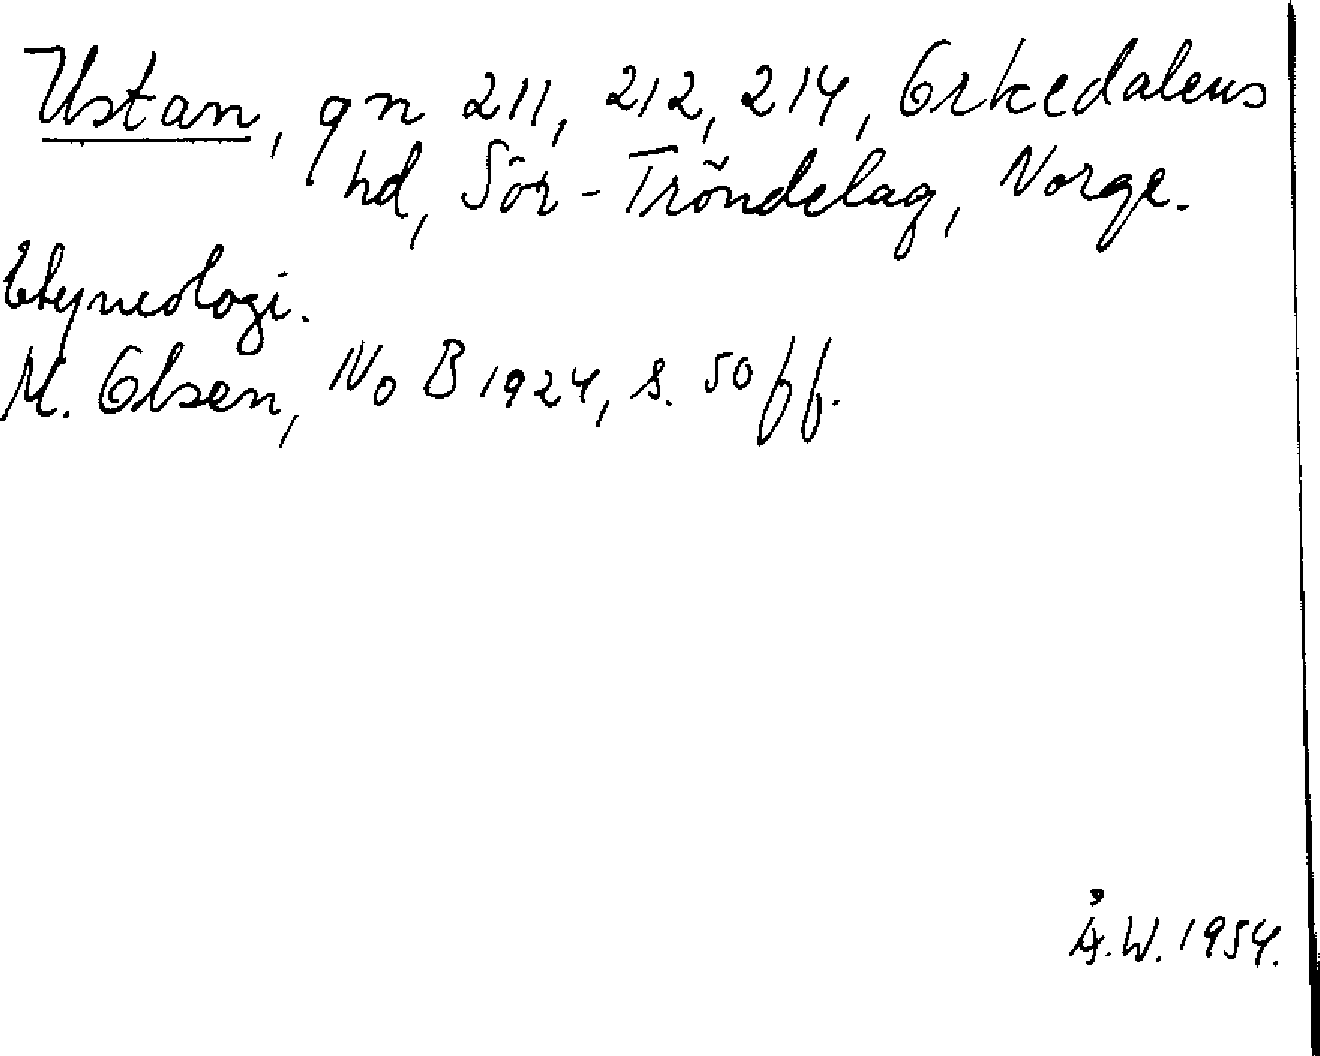 Ustan, gn 211, 212, 214, Orkedalens
hd, Sör-Tröndelag, Norge.
Etymologi.
M. Olsen, NoB 1924, s. 50 ff.
Å.W. 1954.